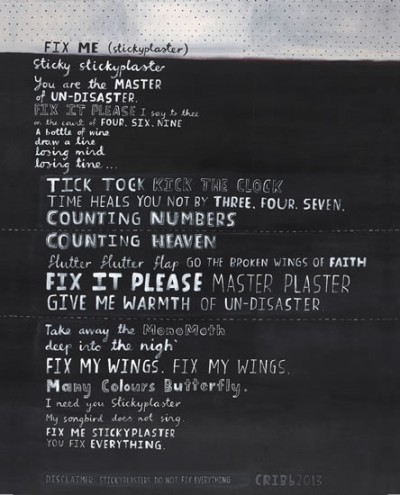 FIX ME (stickyplaster)
Sticky stickyplaster
You are the MASTER
of UN-DISASTER.
FIX IT PLEASE I say to thee
on the count of FOUR. SIX. NINE
A bottle of wine
draw a line
losing mind
losing time ...
TICK TOCK KICK THE CLOCK
TIME HEALS YOU NOT BY THREE. FOUR. SEVEN.
COUNTING NUMBERS
COUNTING HEAVEN
flutter flutter flap GO THE BROKEN WINGS OF FAITH
FIX IT PLEASE MASTER PLASTER
GIVE ME WARMTH OF UN-DISASTER
Take away the MonoMoth
deep into the nigh
FIX MY WINGS. FIX MY WINGS.
Many Colours Butterfly.
I need you Stickyplaster
My songbird does not sing.
FIX ME STICKYPLASTER
YOU FIX EVERYTHING.
DISCLAIMER: STICKYPLASTERS DO NOT FIX EVERYTHING CRIBB 2013